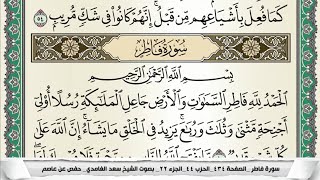 كَمَا فُعِلَ بِأَشْيَاعِهِم مِّن قَبْلُ ۚ إِنَّهُمْ كَانُوا۟ فِى شَكٍّ مُّرِيبٍۭ ٥٤
سُورَةُ فَاطِرٍ
بِسْمِ ٱللَّهِ ٱلرَّحْمَٰنِ ٱلرَّحِيمِ
ٱلْحَمْدُ لِلَّهِ فَاطِرِ ٱلسَّمَٰوَٰتِ وَٱلْأَرْضِ جَاعِلِ ٱلْمَلَٰٓئِكَةِ رُسُلًا أُو۟لِىٓ
أَجْنِحَةٍ مَّثْنَىٰ وَثُلَٰثَ وَرُبَٰعَ ۚ يَزِيدُ فِى ٱلْخَلْقِ مَا يَشَآءُ ۚ إِنَّ ٱللَّهَ
سورة فاطر _ الصفحة ٤٣٤ _ الحزب ٤٤ _ الجزء ٢٢ _ بصوت الشيخ سعد الغامدي _ حفص عن عاصم